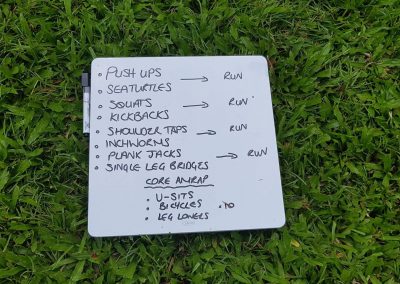 • PUSH UPS → RUN
• SEATURTLES
• SQUATS → RUN
• KICKBACKS
• SHOULDER TAPS → RUN
• INCHWORMS
• PLANK JACKS → RUN
• SINGLE LEG BRIDGES
CORE AMRAP
• U-SITS
• BICYCLES .10
• LEG LOWERS